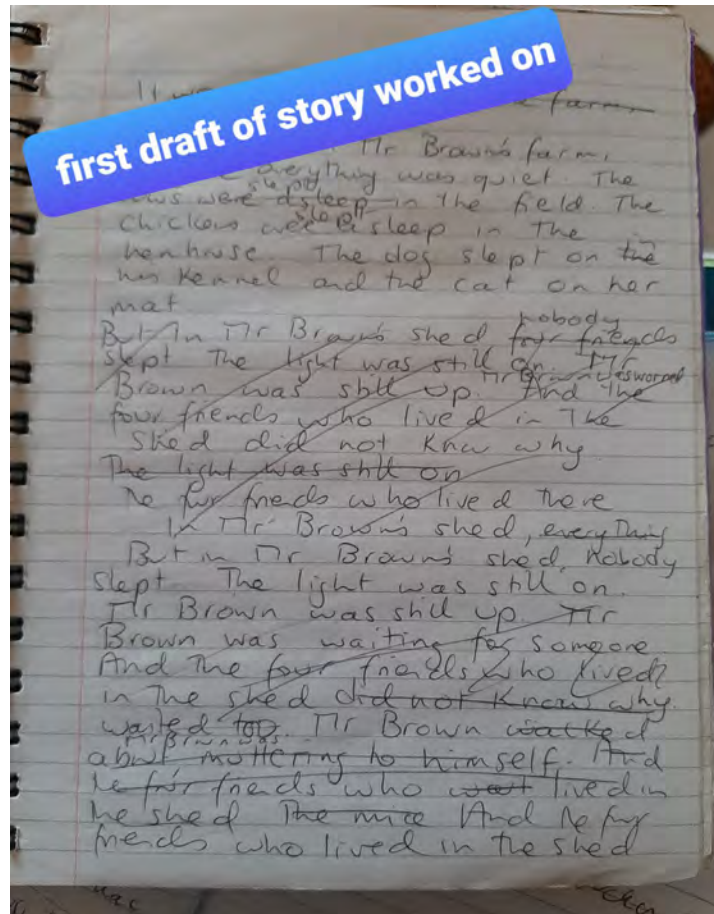 first draft of story worked on
It w
farm.
Mr Brown's farm,
everything was quiet. The
slept
were asleep in the field. The
slept
chickens were asleep in the
henhouse. The dog slept on the
his kennel and the cat on her
mat
nobody
But In Mr Brown's shed four friends
slept The light was still on. Mr
Mr Brown was worried
Brown was still up. And the
four friends who lived in The
Shed did not know why
The light was still on
he four friends who lived there
In Mr Brown's shed, everything
But in Mr Brown's shed, nobody
slept. The light was still on.
Mr Brown was still up. Mr
Brown was waiting for someone.
And The four friends who lived
in The shed did not know why.
waited too. Mr Brown walked
Mr Brown was
about muttering to himself. And
he four friends who lived in
he shed The mice And he four
friends who lived in the shed